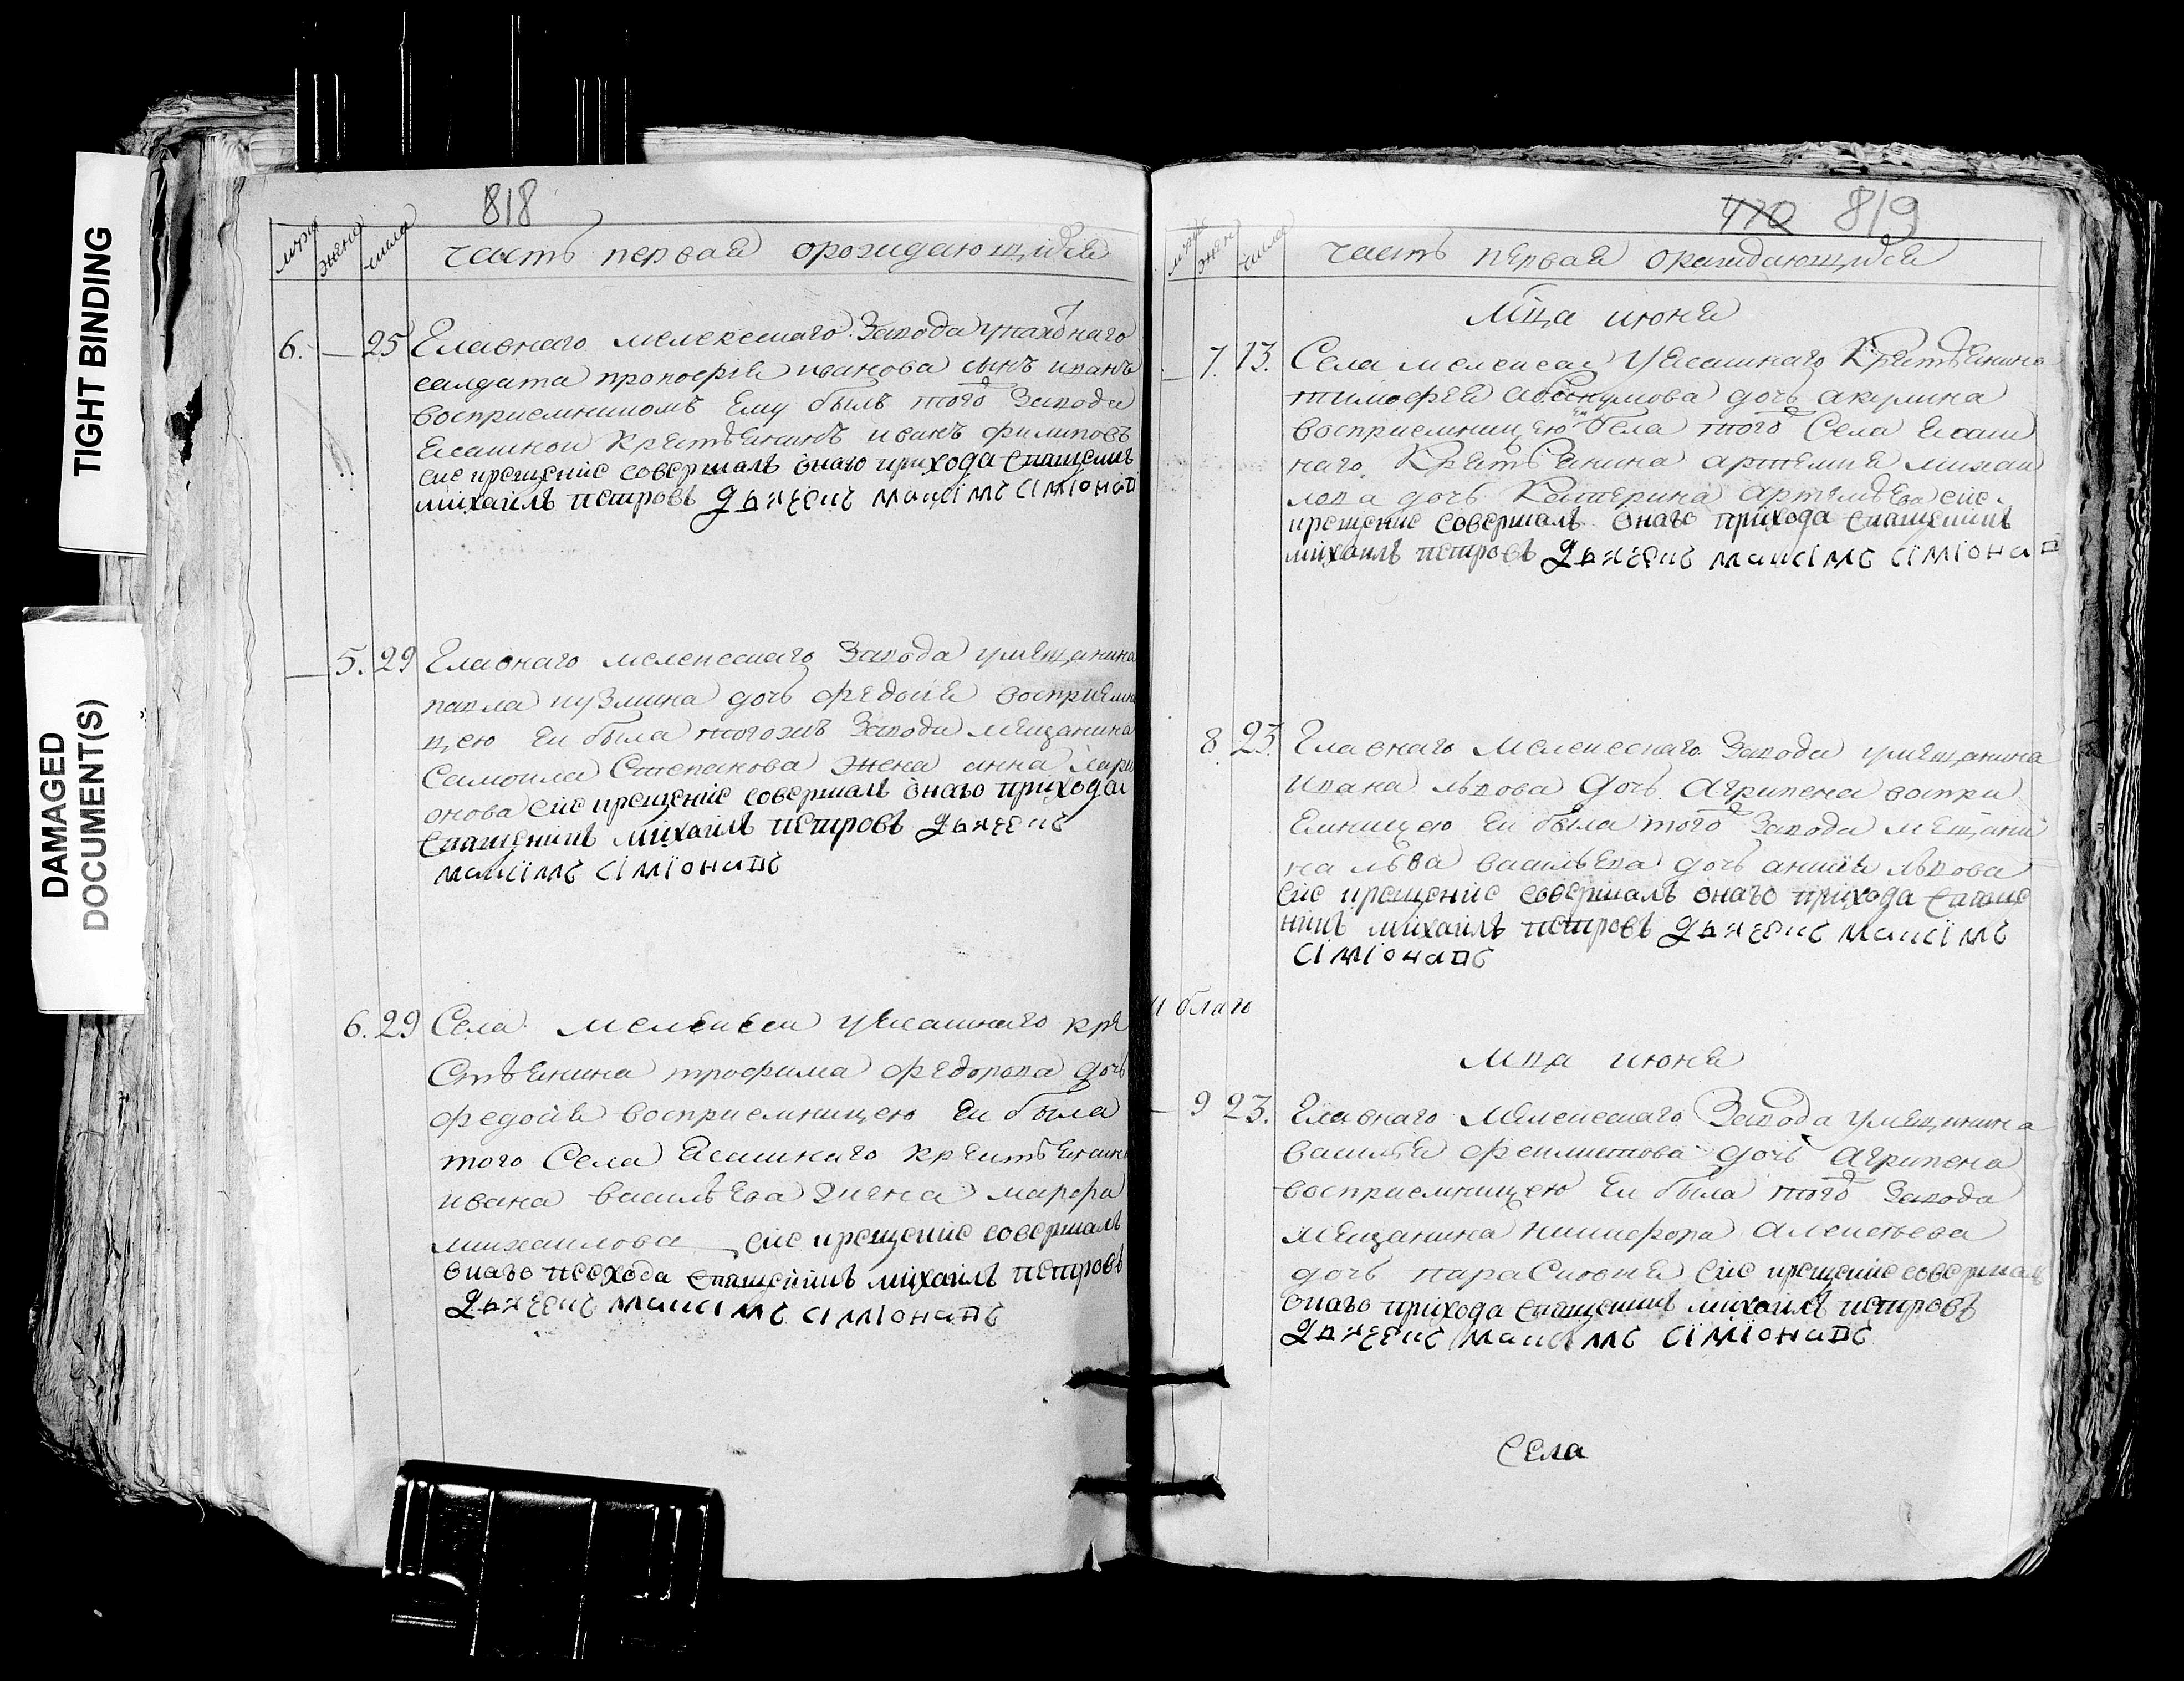 TIGHT BINDING
DAMAGED
DOCUMENT(S)
818
мужс женс числа
часть первая орождающихся
6. — 25 Главнаго мелекескаго Завода упахотнаго
салдата прокофья иванова сынъ иванъ
восприемникомъ Ему былъ того Завода
Ясашной крестьянинъ иванъ филиповъ
сие крещение совершалъ онаго прихода священникъ
михаилъ петровъ дьячекъ маѯимъ симионовъ
— 5. 29 Главнаго мелекескаго Завода умещанина
павла кузмина дочь федосья восприемни
цею Еи была тогожъ Завода мещанина
Самоила Степанова жена анна лари
онова сие крещение совершалъ онаго прихода
священникъ михаилъ петровъ дьячекъ
максимъ симионовъ
6. 29 Села мелекеса уясашнаго кре
стьянина трофима федорова дочь
федосья восприемницею Еи была
того Села Ясашнаго крестьянина
ивана васильева жена марфа
михаилова сие крещение совершалъ
онаго прихода священникъ михаилъ петровъ
дьячекъ максимъ симионовъ
470 819
мужс женс числа
часть первая оражидающихся
Мца июня
— 7. 13. Села мелекеса уясашнаго Крестьянина
тимофея дочь акулина
восприемницею Еи бела того Села Ясаш
наго Крестьянина артемия михаи
лова дочь Катерина артемьева сие
крещение совершалъ онаго прихода священникъ
михаилъ петровъ дьячекъ максимъ симионов
8. 23. Главнаго Мелекескаго Завода умещанина
Ивана львова дочь Агрипена воспри
емницею Еи была того Завода мещани
на льва васильева дочь анисья львова
сие крещение совершалъ онаго прихода свяще
нникъ михаилъ петровъ дьячекъ максимъ
симионовъ
и благо
мца июня
— 9 23. Главнаго Мелекескаго Завода умещанина
василья феилистова дочь Агрипена
восприемницею Еи была того Завода
мещанина никифора алексеева
дочь парасковья сие крещение совершалъ
онаго прихода священникъ михаилъ петровъ
дьячекъ максимъ симионовъ
Села